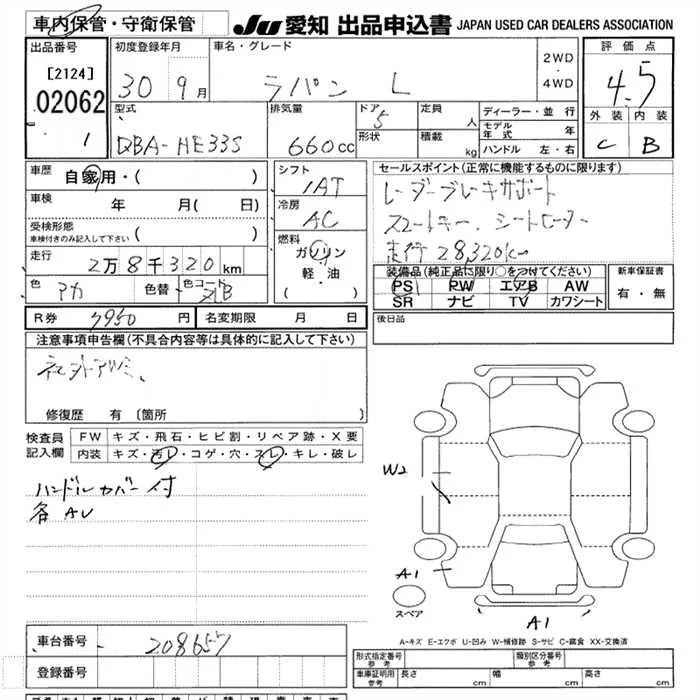 車内保管・守衛保管 JU 愛知 出品申込書 JAPAN USED CAR DEALERS ASSOCIATION
出品番号
[2124]
02062
1
初度登録年月
30 9月
車名・グレード
ラパン L
2WD
・
4WD
評価点
4.5
外装 内装
C B
型式
DBA-HE33S
排気量
660cc
ドア 5
形状
定員 人
積載 kg
ディーラー・並行
モデル年式 年
ハンドル 左・右
車歴
自家用・( )
車検 年 月 ( 日)
受検形態
車検付きのみ記入して下さい ( )
走行
2万8千320km
色 アカ 色替 色コード
R券 7950円 名変期限 月 日
シフト
IAT
冷房
AC
燃料
ガソリン
・
軽・油
セールスポイント(正常に機能するものに限ります)
レーダーブレーキサポート
スマートキー、シートヒーター
走行28,320km
装備品(純正品に限り○をつけてください)
PS PW エアB AW
SR ナビ TV カワシート
新車保証書
有・無
後日品
注意事項申告欄(不具合内容等は具体的に記入して下さい)
修復歴 有 〔箇所 〕
検査員記入欄
FW キズ・飛石・ヒビ割・リペア跡・X要
内装 キズ・汚レ・コゲ・穴・スレ・キレ・破レ
ハンドルカバー付
各AU
W2
A1
スペア
A1
A-キズ E-エクボ U-凹み W-補修跡 S-サビ C-腐食 XX-交換済
車台番号
登録番号
形式指定番号
参考
類別区分番号
参考
車庫証明用
参考
長さ cm 幅 cm 高さ cm